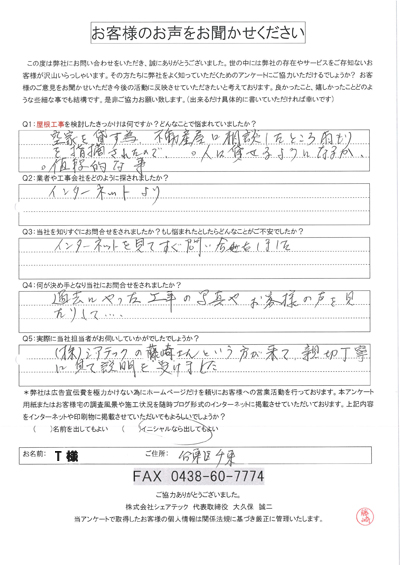 お客様のお声をお聞かせください
この度は弊社にお問い合わせをいただき、誠にありがとうございました。世の中には弊社の存在やサービスをご存知ないお
客様が沢山いらっしゃいます。その方たちに弊社をよく知っていただくためのアンケートにご協力いただけるでしょうか? お客
様のご意見をお聞かせいただき今後の活動に反映させていただきたいと考えております。良かったこと、嬉しかったことどのよ
うな些細な事でも結構です。是非ご協力お願い致します。(出来るだけ具体的に書いていただければ幸いです)
Q1:屋根工事を検討したきっかけは何ですか?どんなことで悩まれていましたか?
空家を貸す為、不動産屋に相談したところ雨もり
を指摘されたので、 ○人に貸せるようになるか、
○値段的な事
Q2:業者や工事会社をどのように探されましたか?
インターネットより
Q3:当社を知りすぐにお問合せをされましたか?もし悩まれたとしたらどんなことがご不安でしたか?
インターネットを見てすぐ問い合わせしました
Q4:何が決め手となり当社にお問合せをされましたか?
過去にやった工事の写真やお客様の声を見
たりして‥‥
Q5:実際に当社担当者がお伺いしていかがでしたでしょうか?
(株)シェアテックの藤崎さんという方が来て、親切丁寧
に見て説明を受けました
*弊社は広告宣伝費を極力かけない為にホームページだけを頼りにお客様への営業活動を行っております。本アンケート
用紙またはお客様宅の調査風景や施工状況を随時ブログ形式のインターネットに掲載させていただいております。上記内容
をインターネットや印刷物に掲載させていただいてもよろしいでしょうか?
( )名前を出してもよい ( )イニシャルなら出してもよい
お名前: T 様 ご住所:
FAX 0438-60-7774
ご協力ありがとうございました。
株式会社シェアテック 代表取締役 大久保 誠二
当アンケートで取得したお客様の個人情報は関係法規に基づき厳正に管理いたします。